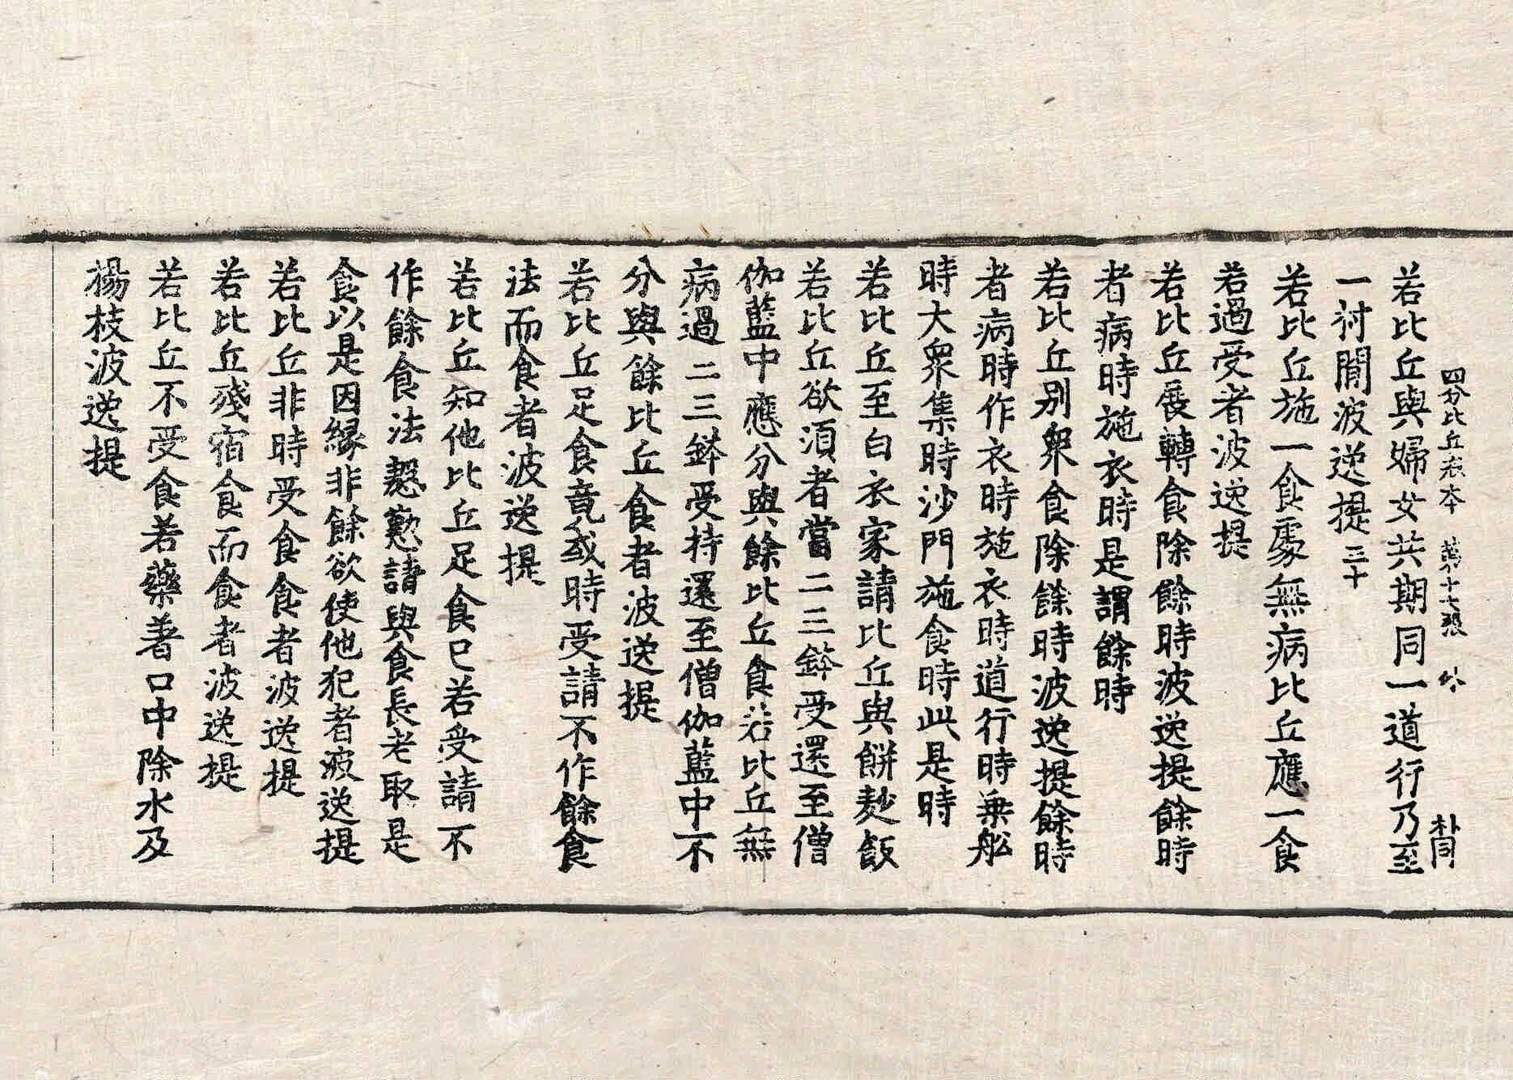 四分比丘戒本　第十七張　外
朴同
若比丘與婦女共期同一道行乃至
一村閒波逸提三十
若比丘施一食處無病比丘應一食
若過受者波逸提
若比丘展轉食除餘時波逸提餘時
者病時施衣時是謂餘時
若比丘別衆食除餘時波逸提餘時
者病時作衣時施衣時道行時乗舩
時大衆集時沙門施食時此是時
若比丘至白衣家請比丘與餅麨飯
若比丘欲湏者當二三鉢受還至僧
伽藍中應分與餘比丘食若比丘無
病過二三鉢受持還至僧伽藍中不
分與餘比丘食者波逸提
若比丘足食竟或時受請不作餘食
法而食者波逸提
若比丘知他比丘足食已若受請不
作餘食法慇懃請與食長老取是
食以是因縁非餘欲使他犯者波逸提
若比丘非時受食食者波逸提
若比丘殘宿食而食者波逸提
若比丘不受食若藥著口中除水及
楊枝波逸提